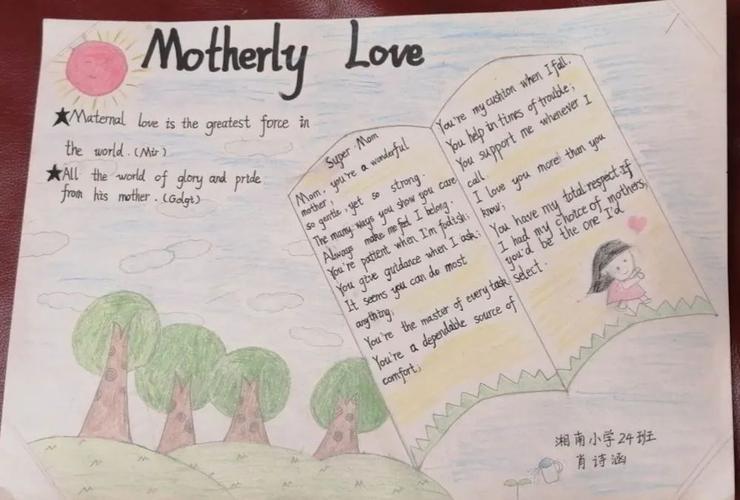 Motherly Love
★Maternal love is the greatest force in
the world. (Mir)
★All the world of glory and pride
from his mother. (Golgi)
Super Mom
Mom, you're a wonderful
mother,
so gentle, yet so strong.
The many ways you show you care
Always make me feel I belong.
You're patient when I'm foolish;
You give guidance when I ask;
It seems you can do most
anything;
You're the master of every task
You're a dependable source of
comfort;
You're my cushion when I fall.
You help in times of trouble;
You support me whenever I
call.
I love you more than you
know;
You have my total respect. If
I had my choice of mothers,
you'd be the one I'd
select.
湘南小学24班
肖诗涵